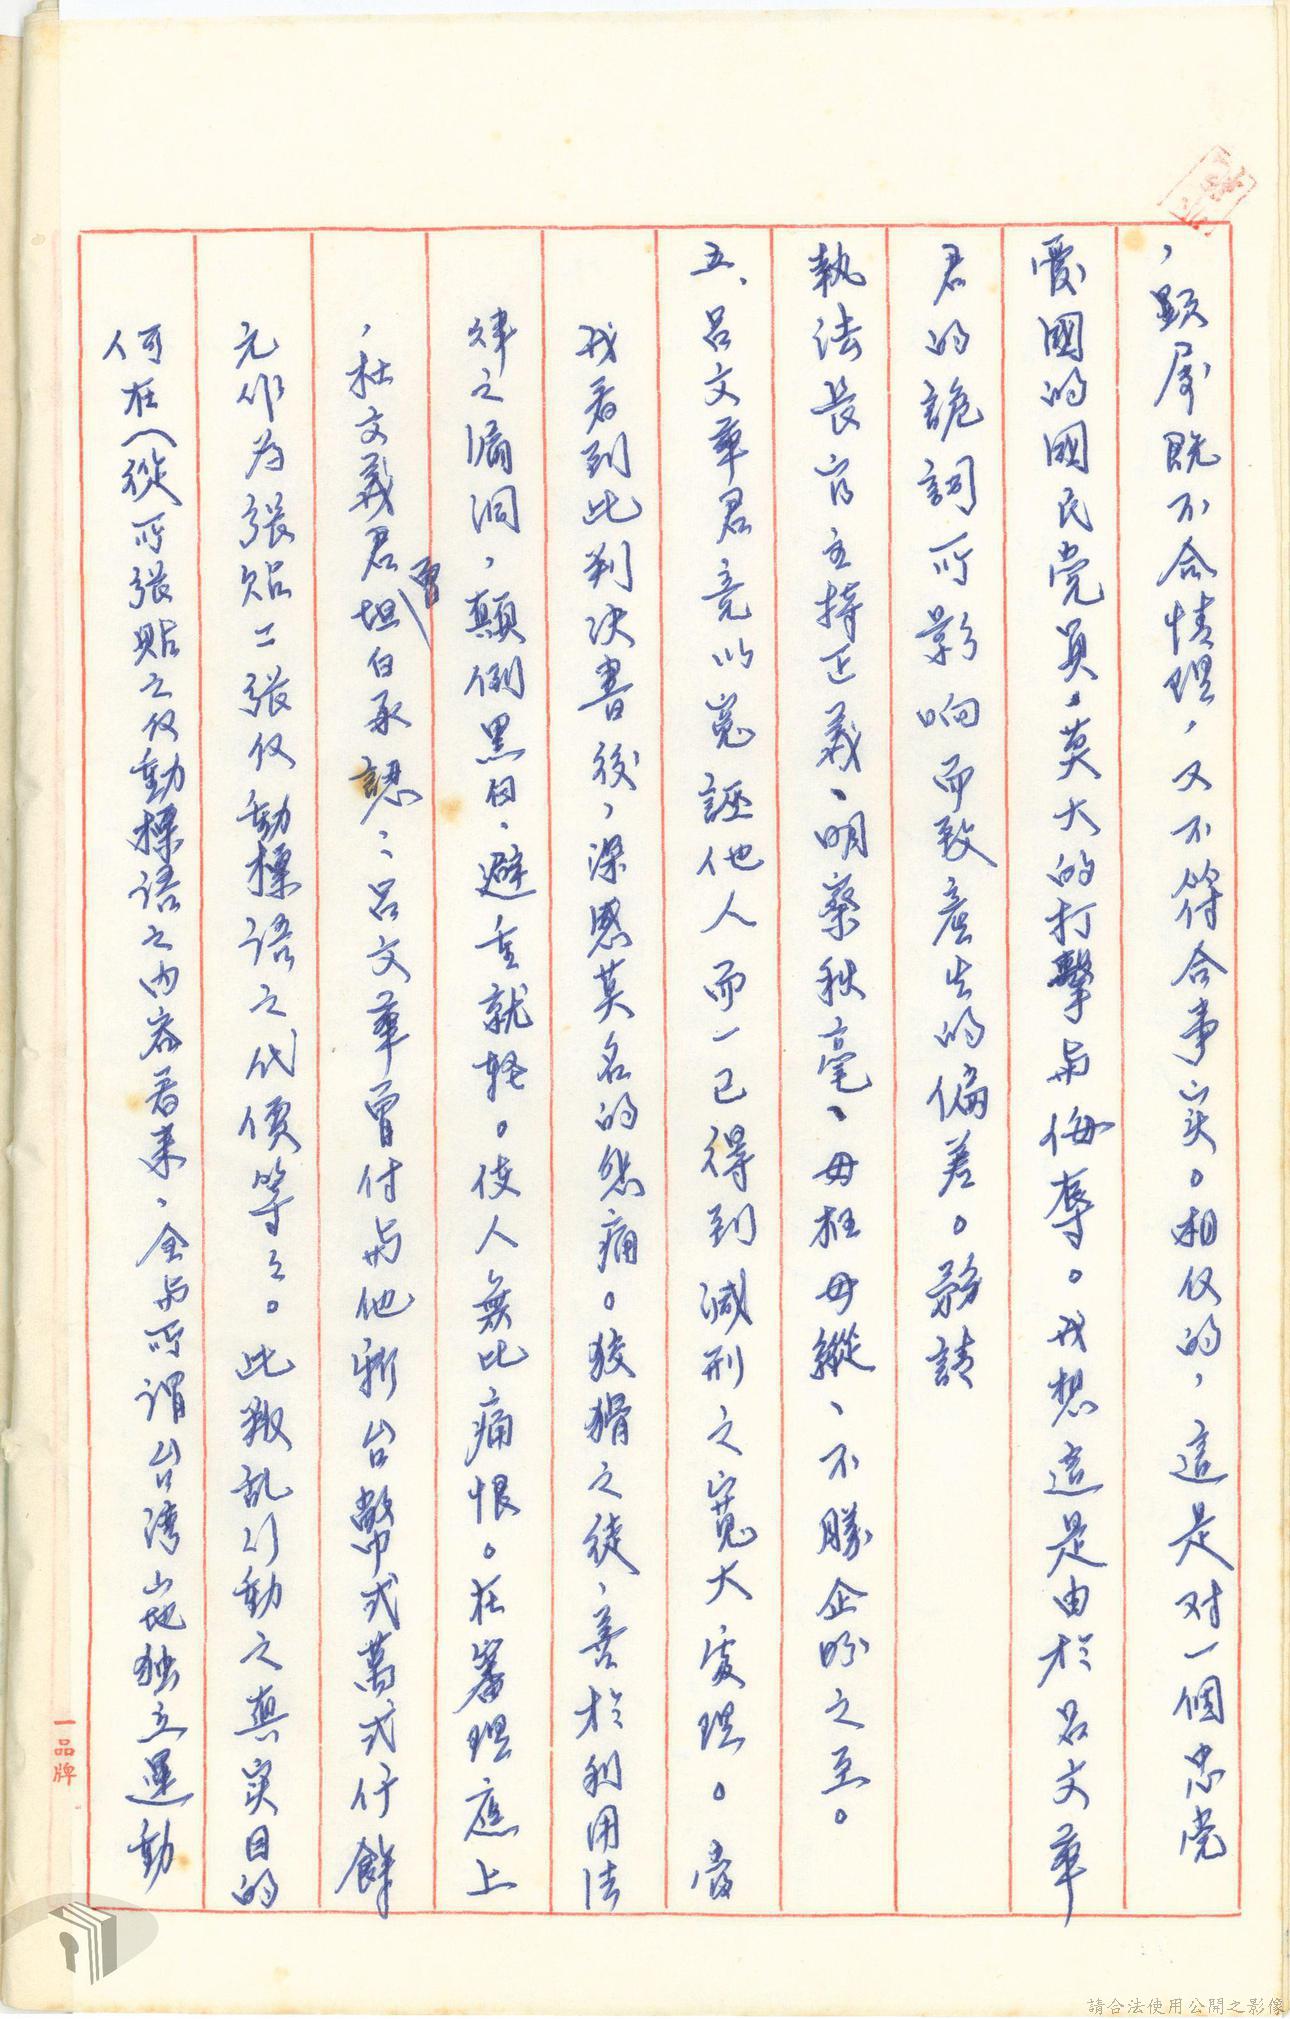 ，顯屬既不合情理，又不符合事实。相仅的，這是对一個忠党
愛國的國民党員，莫大的打擊与侮辱。我想這是由於呂文華
君的詭詞所影响而致產生的偏差。務請
執法長官主持正義、明察秋毫、毋枉毋縱、不勝企盼之至。
五、呂文華君竟以冤誣他人而一己得到減刑之寬大處理。當
我看到此判決書後，深感莫名的悲痛。狡猾之徒，善於利用法
律之漏洞，顛倒黑白，避重就軽。使人無比痛恨。在審理庭上
，杜文義君曾坦白承認：呂文華曾付与他新台幣弍萬弍仟餘
元作為張貼二張仅動標語之代價等々。此叛乱行動之真实目的
何在（從所張貼之仅動標語之内容看来，全与所謂台湾山地独立運動
一品牌
請合法使用公開之影像